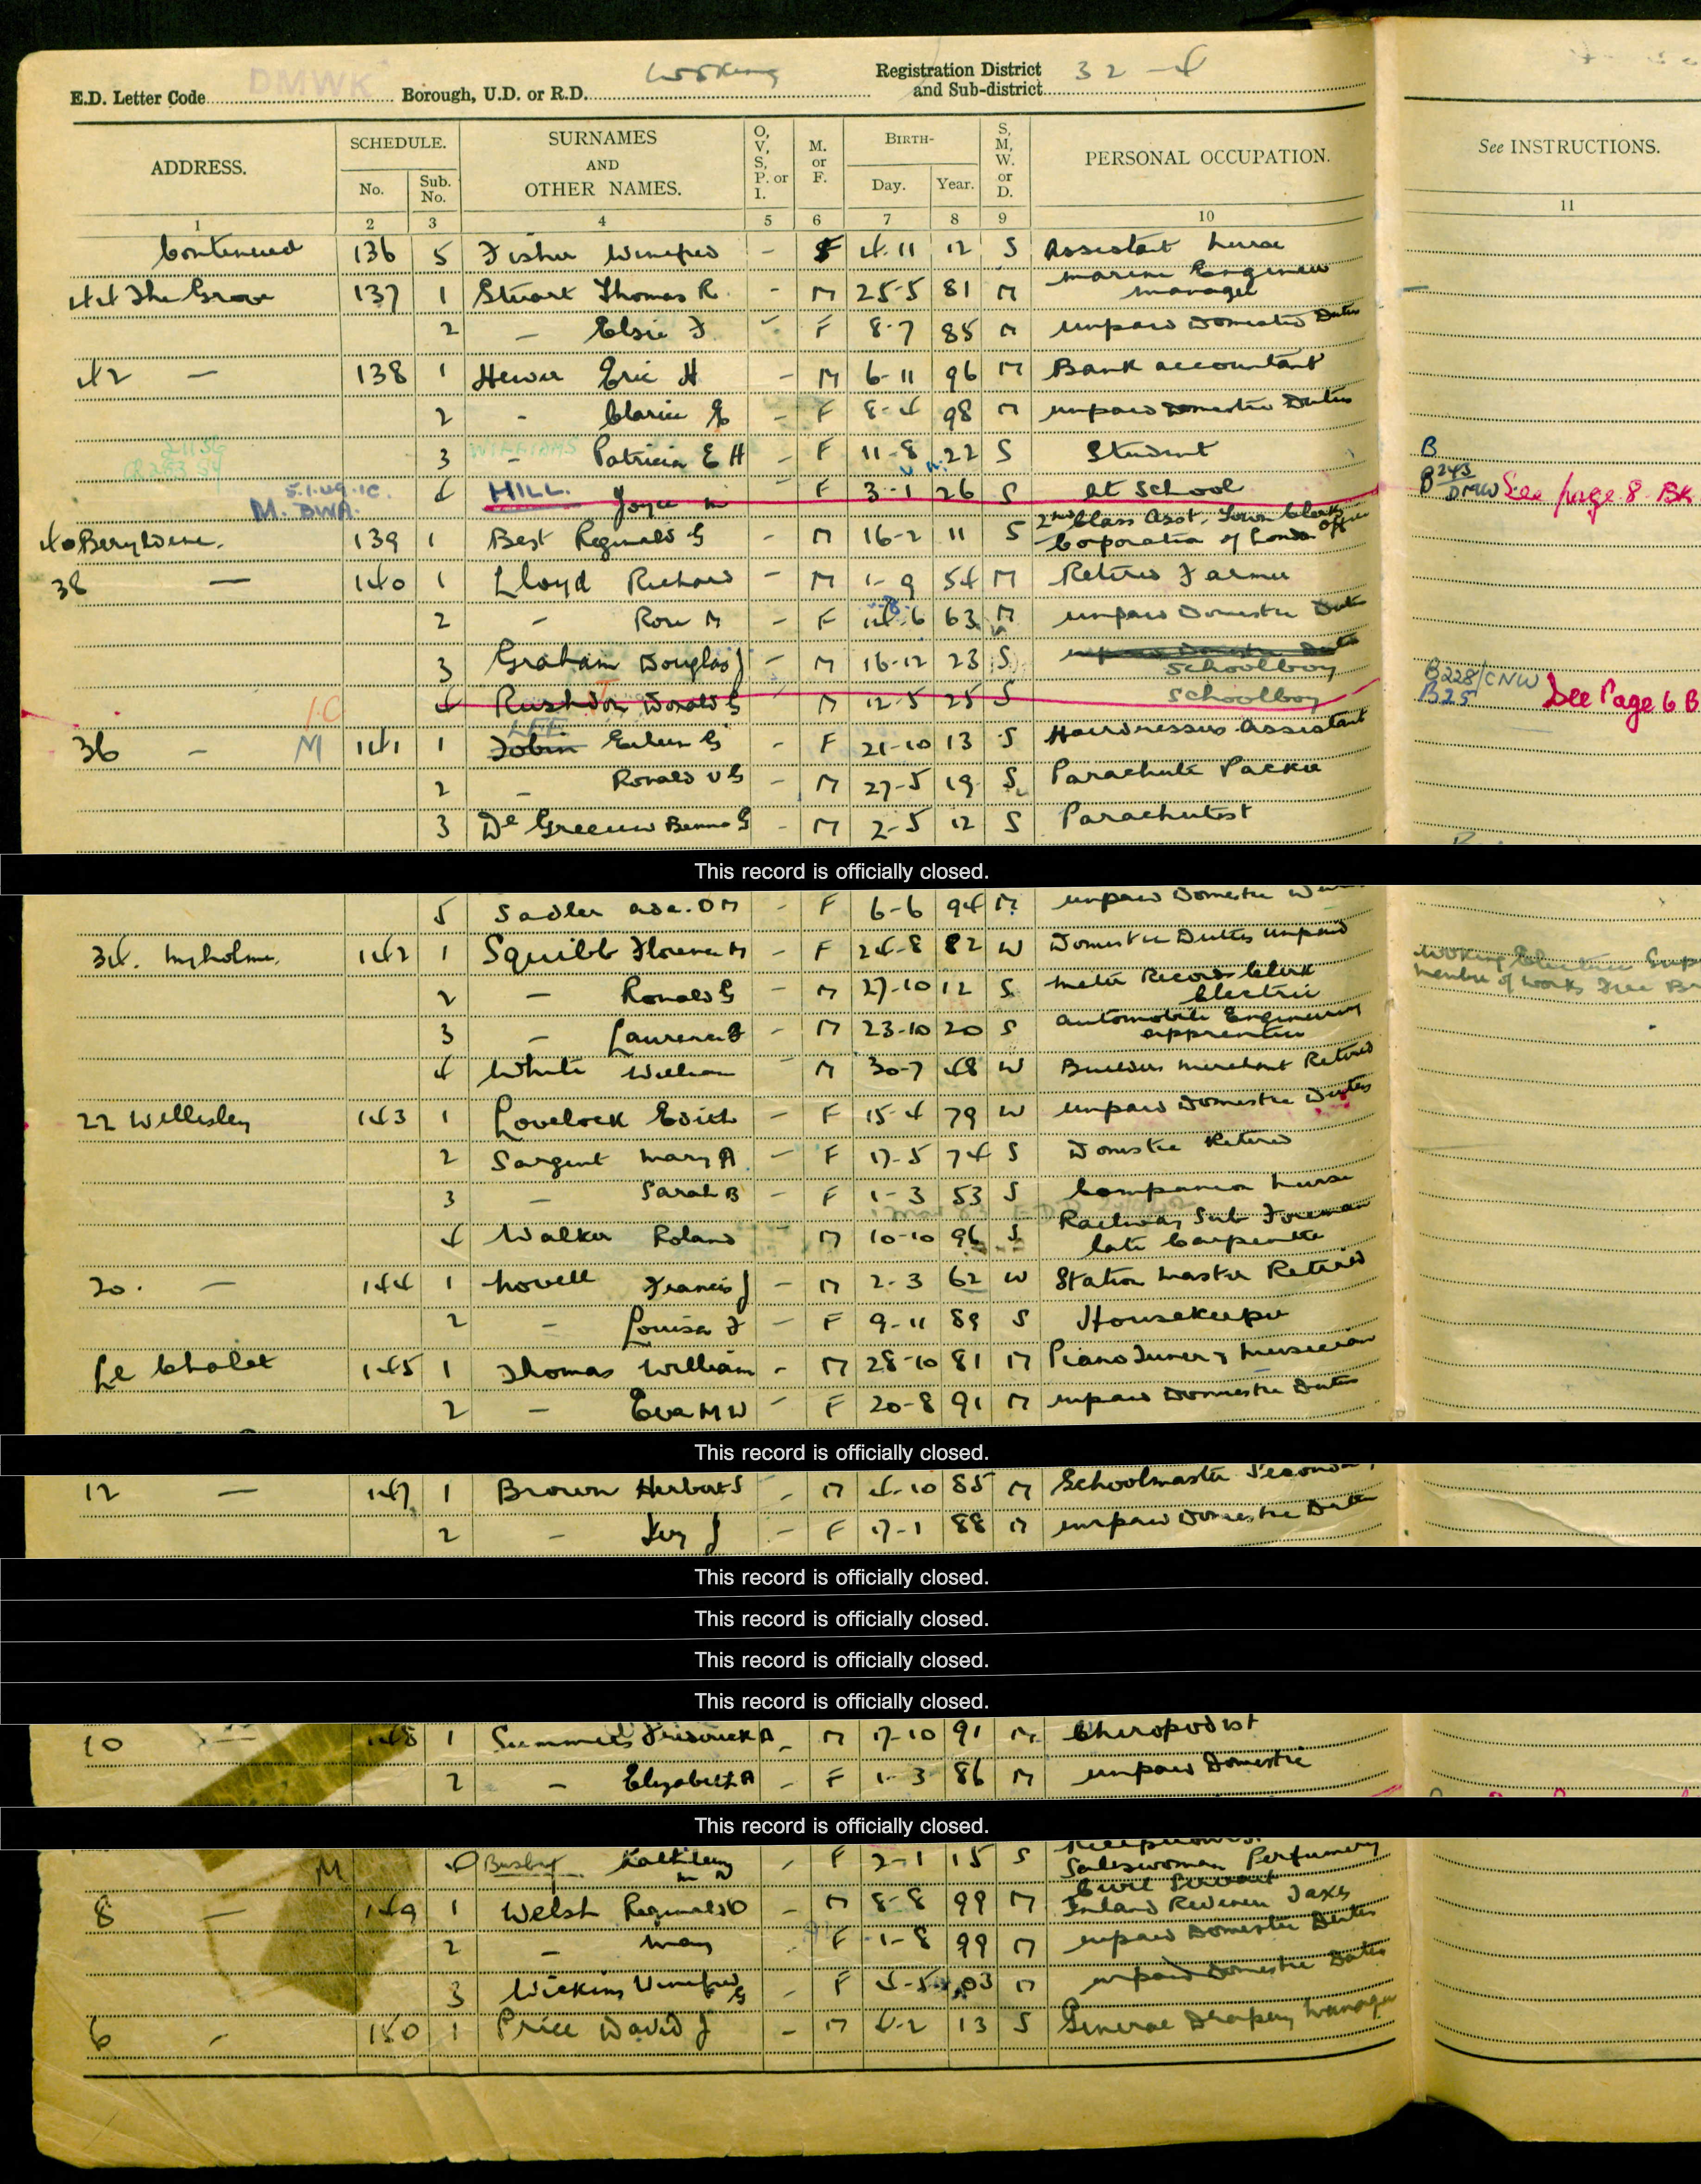 DMWK
Woking
32-4
E.D. Letter Code
Borough, U.D. or R.D.
Registration District
and Sub-district
ADDRESS.
SCHEDULE.
No.
Sub. No.
SURNAMES
AND
OTHER NAMES.
O, V, S, P. or I.
M. or F.
BIRTH-
Day.
Year.
S, M, W. or D.
PERSONAL OCCUPATION.
See INSTRUCTIONS.
1 2 3 4 5 6 7 8 9 10 11
Continued 136 5 Fisher Winifred - F 4-11 12 S Assistant Nurse
44 The Grove 137 1 Stuart Thomas R - M 25-5 81 M Marine Engineer
Manager
2 - Elsie F - F 8-7 85 M Unpaid Domestic Duties
42 - 138 1 Hewer Eric H - M 6-11 96 M Bank accountant
2 - Clarice G - F 8-4 98 M Unpaid Domestic Duties
WILLIAMS
3 - Patricia E H - F 11-8 22 S Student B
5.1.49.1C.
M. BWA.
4 HILL Joyce M F 3-1 26 S At School
B243 DMW See page 8 BK
40 Beryldene. 139 1 Best Reginald G - M 16-2 11 S 2nd Class Asst. Town Clerks Office
Corporation of London
38 - 140 1 Lloyd Richard - M 1-9 54 M Retired Farmer
2 - Rose M - F 14-6 63 M Unpaid Domestic Duties
3 Graham Douglas J - M 16-12 23 S Unpaid Domestic Duties
Schoolboy
4 Donald G M 12-5 25 S Schoolboy
B228/CNW
B25 See Page 6 B
1C
LEE
36 - M 141 1 Tobin Eileen G - F 21-10 13 S Hairdressers Assistant
2 - Ronald V G - M 27-5 19 S Parachute Packer
3 De Greeuw Benno G - M 2-5 12 S Parachutist
This record is officially closed.
5 Sadler Ada. D M - F 6-6 94 M Unpaid Domestic
34. 142 1 Squibb Florence M - F 24-8 82 W Domestic Duties Unpaid
2 - Ronald G - M 27-10 12 S Meter Records Clerk
Electric
Woking Electric Sup
member of Works Fire Br
3 - Laurence - M 23-10 20 S Automobile Engineering
apprentice
4 White William - M 30-7 48 W Builders Merchant Retired
22 Wellesley 143 1 Lovelock Edith - F 15-4 79 W Unpaid Domestic Duties
2 Sargent Mary A - F 17-5 74 S Domestic Retired
3 - Sarah B - F 1-3 53 S Companion Nurse
4 Walker Roland - M 10-10 96 S Railway Sub Foreman
late Carpenter
20. - 144 1 Lovell Francis J - M 2-3 62 W Station Master Retired
2 - Louisa F - F 9-11 89 S Housekeeper
Le Chalet 145 1 Thomas William - M 28-10 81 M Piano Tuner & Musician
2 - Eva M W - F 20-8 91 M Unpaid Domestic Duties
This record is officially closed.
12 - 147 1 Brown Herbert S - M 4-10 85 M Schoolmaster Secondary
2 - Ivy J - F 17-1 88 M Unpaid Domestic Duties
This record is officially closed.
This record is officially closed.
This record is officially closed.
This record is officially closed.
10 - 148 1 Summers Frederick A - M 17-10 91 M Chiropodist
2 - Elizabeth A - F 1-3 86 M Unpaid Domestic
This record is officially closed.
M 4 Busby Kathleen M - F 2-1 15 S Receptionist
Saleswoman Perfumery
8 - 149 1 Welsh Reginald O - M 8-8 99 M Civil Servant
Inland Revenue Taxes
2 - May F 1-8 99 M Unpaid Domestic Duties
3 Wickins Winifred G - F 4-5 03 M Unpaid Domestic Duties
6 - 150 1 Price David J - M 4-2 13 S General Drapery Manager